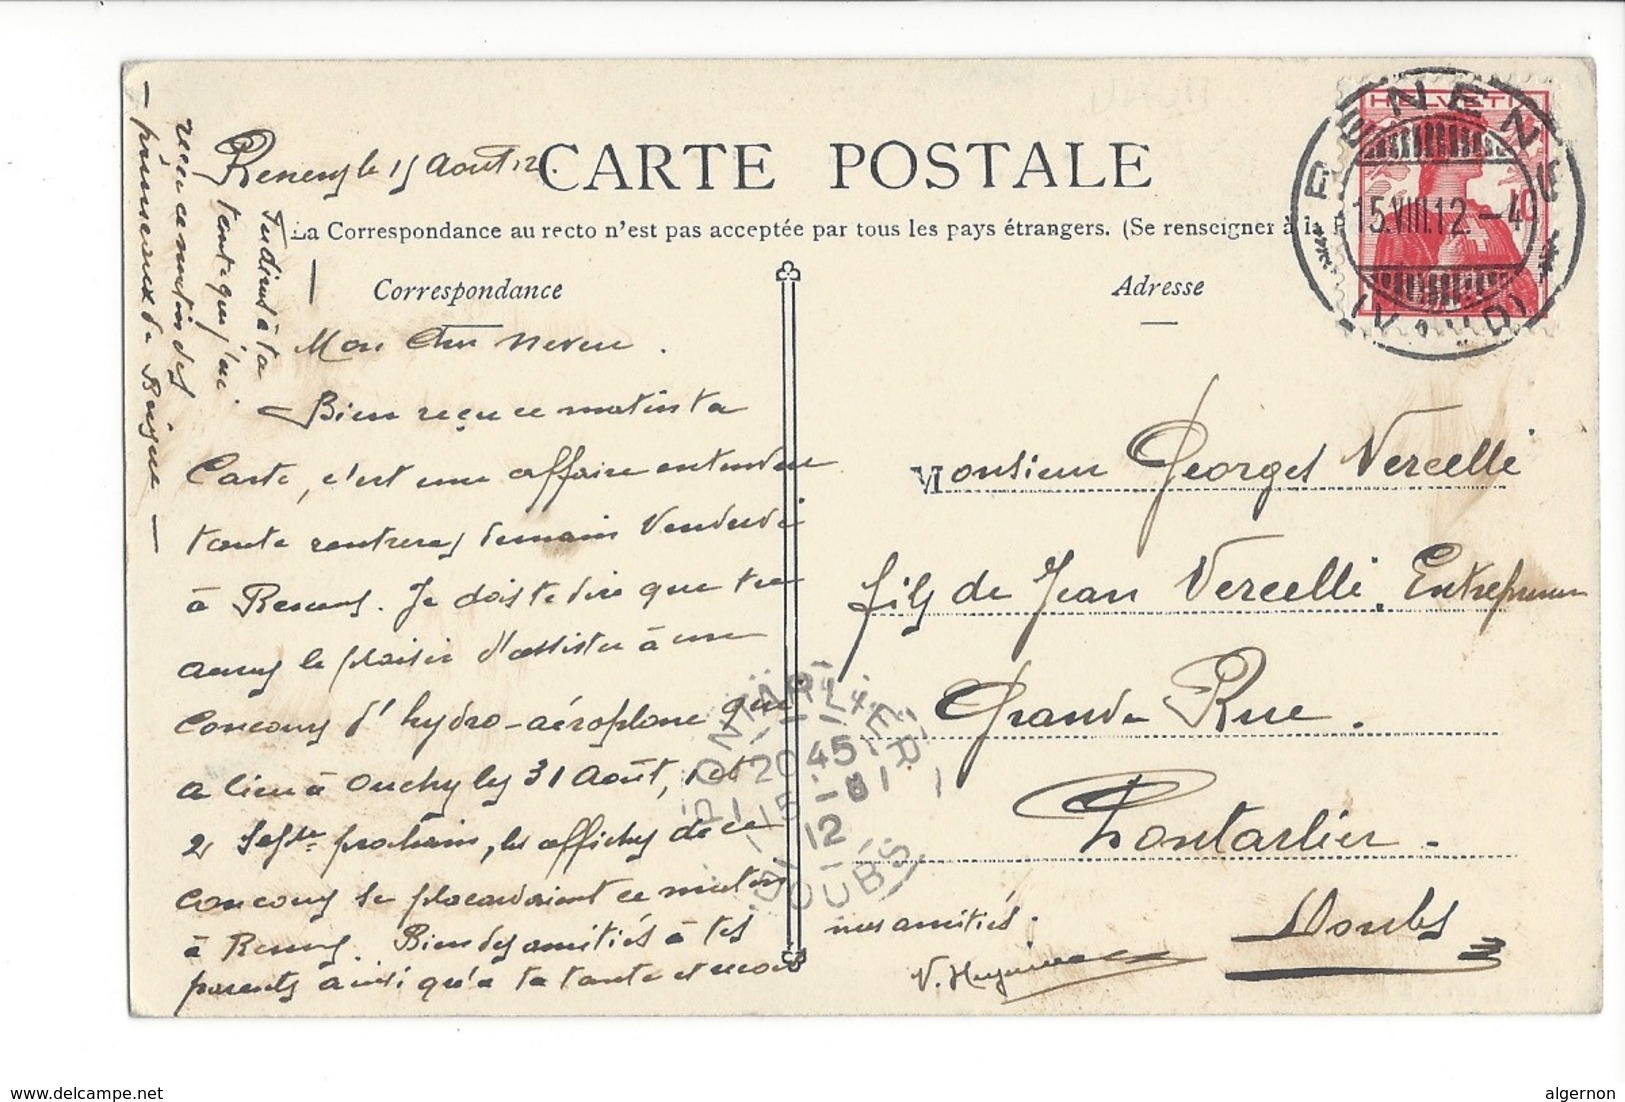 Renens le 15 Août 12.
CARTE POSTALE
La Correspondance au recto n'est pas acceptée par tous les pays étrangers. (Se renseigner à la P
Correspondance
Mon Cher Neveu.
Bien reçu ce matin ta
Carte, c'est une affaire entendue
tante rentrera demain Vendredi
à Renens. Je dois te dire que tu
auras le plaisir d'assister à un
Concours d'hydro-aéroplane qui
a lieu à Ouchy les 31 Août, 1 et
2 Septre prochain, les affiches de ce
concours se placardaient ce matin
à Renens. Bien des amitiés à tes
parents ainsi qu'à ta tante et reçois
mes amitiés.
V. Huguenin
Tu diras à ta
tante que j'ai
reçu ce matin des
- pruneaux de Boigne -
Adresse
Monsieur Georges Vercelli
fils de Jean Vercelli, Entrepreneur
Grande Rue.
Pontarlier.
Doubs
HELVETIA
10
RENENS
15.VIII.12.-4
(VAUD)
PONTARLIER
20 45
15 - 8
12
DOUBS
www.delcampe.net
algernon